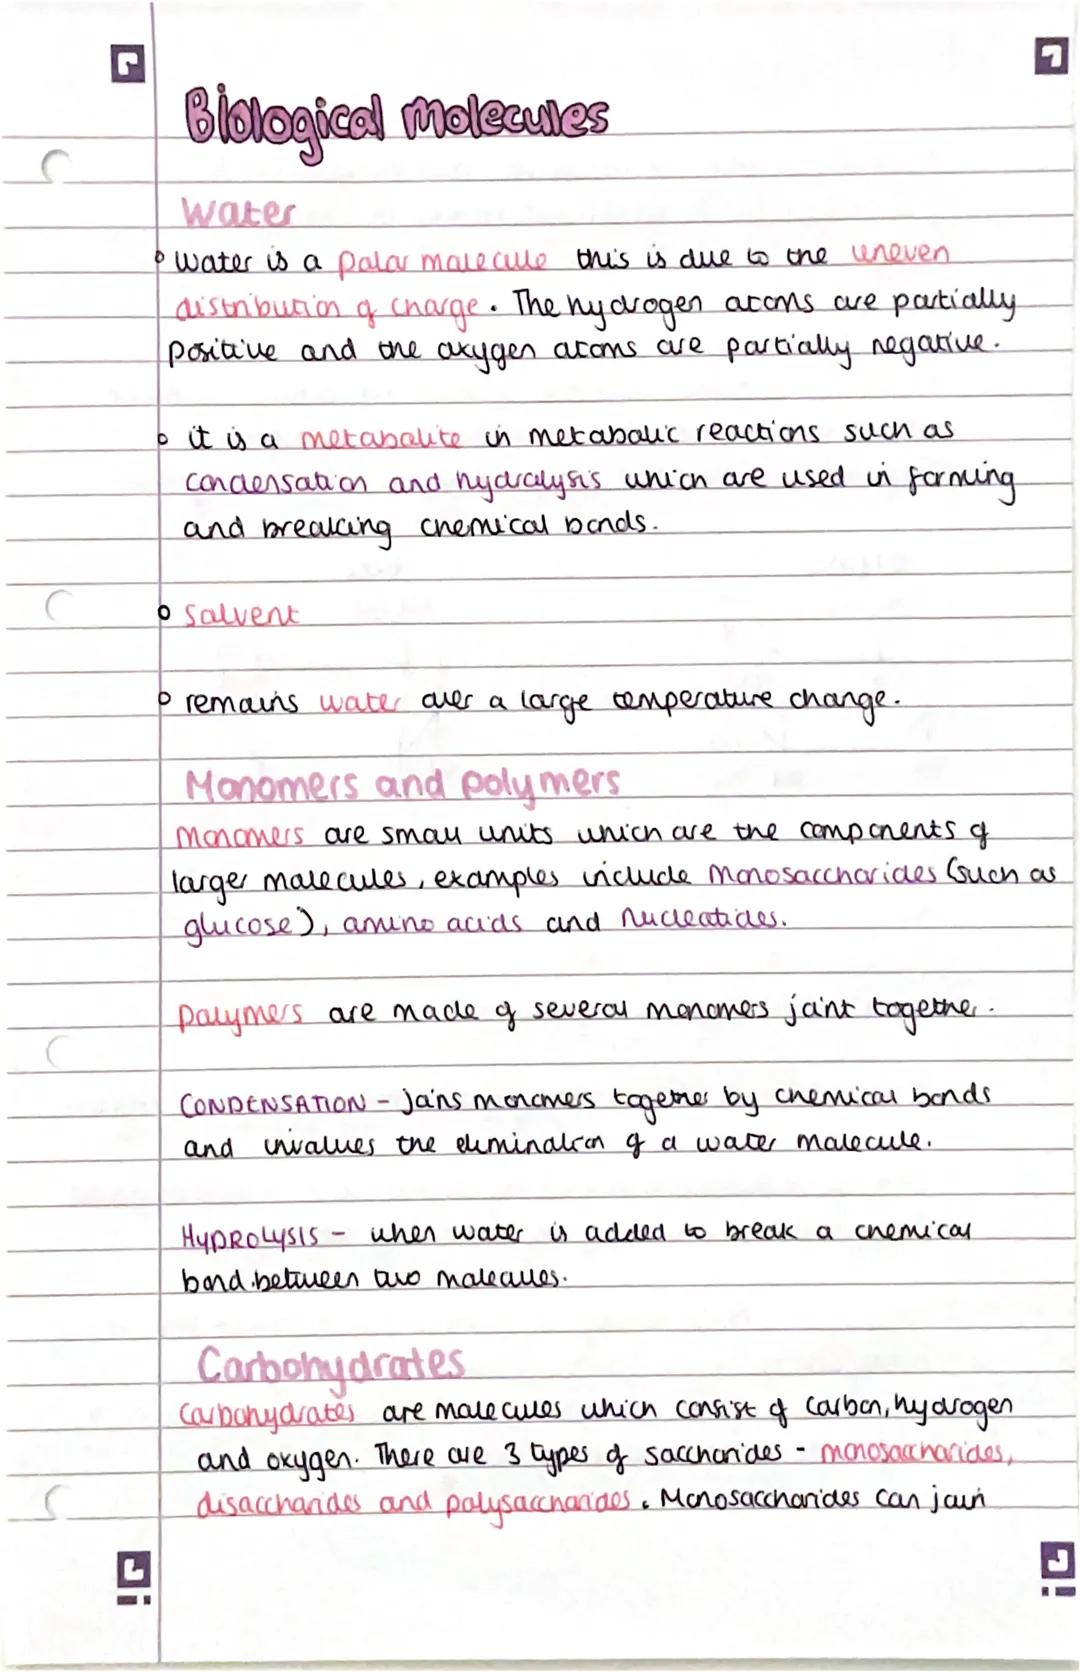 Biological Molecules
Water
Water is a polar molecule this is due to the uneven
distribution of charge. The hydrogen atoms are partially
positive and the oxygen atoms are partially negative.
it is a metabolite in metabolic reactions such as
condensation and hydrolysis which are used in forming
and breaking chemical bonds.
Solvent
remains water over a large temperature change.
Monomers and polymers
Monomers are small units which are the components of
larger molecules, examples include Monosaccharides (such as
glucose), amino acids and nucleotides.
Polymers are made of several monomers joint together.
CONDENSATION - Joins monomers together by chemical bonds
and involves the elimination of a water molecule.
HYDROLYSIS - when water is added to break a chemical
bond between two molecules.
Carbohydrates
Carbohydrates are molecules which consist of carbon, hydrogen
and oxygen. There are 3 types of saccharides - monosaccharides,
disaccharides and polysaccharides. Monosaccharides can join